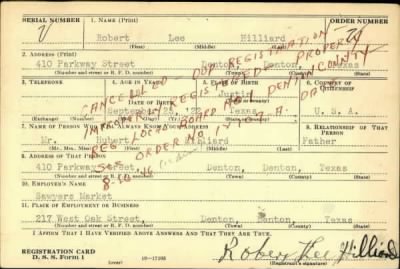 SERIAL NUMBER 1. NAME (Print) ORDER NUMBER
Robert Lee Hilliard
(First) (Middle) (Last)
2. ADDRESS (Print)
410 Parkway Street Denton, Denton, Texas
(Number and street or R. F. D. number) (Town) (County) (State)
3. TELEPHONE 4. AGE IN YEARS 5. PLACE OF BIRTH 6. COUNTRY OF CITIZENSHIP
Justin
DATE OF BIRTH
September 28, '22 Texas U. S. A.
7. NAME OF PERSON WHO WILL ALWAYS KNOW YOUR ADDRESS 8. RELATIONSHIP OF THAT PERSON
Mr. Hubert Hilliard Father
(Mr., Mrs., Miss) (First) (Middle) (Last)
9. ADDRESS OF THAT PERSON
410 Parkway Street, Denton, Denton, Texas
(Number and street or R. F. D. number) (Town) (County) (State)
10. EMPLOYER'S NAME
Sawyers Market
11. PLACE OF EMPLOYMENT OR BUSINESS
217 West Oak Street, Denton, Denton, Texas
(Number and street or R. F. D. number) (Town) (County) (State)
I AFFIRM THAT I HAVE VERIFIED ABOVE ANSWERS AND THAT THEY ARE TRUE.
REGISTRATION CARD
D. S. S. Form 1 (over)
Robert Lee Hilliard
(Registrant's signature)
CANCELLED OUR REGISTRATION
IMPROPERLY REGISTERED PROPERLY
REG LOCAL BOARD NO. DENTON COUNTY
SEE ORDER NO.
8-10-46